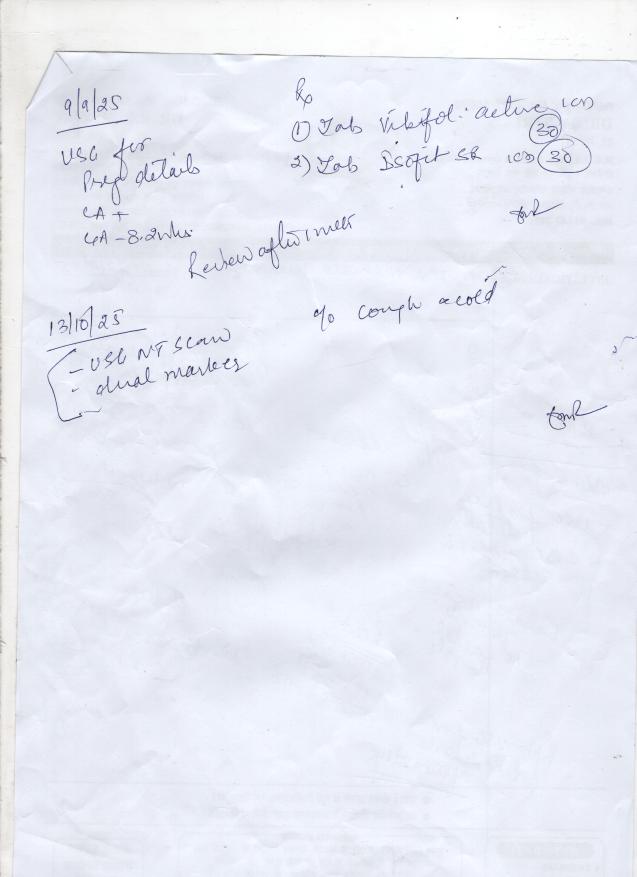 9/9/25
USG for
Preg details
CA +
GA - 8.2wks.
Rx
1) Tab Vibifol. active (30)
2) Tab Dsofit SR (30)
Review after 1 mnth
13/10/25
- USG NT Scan
- dual marker
c/o cough & cold